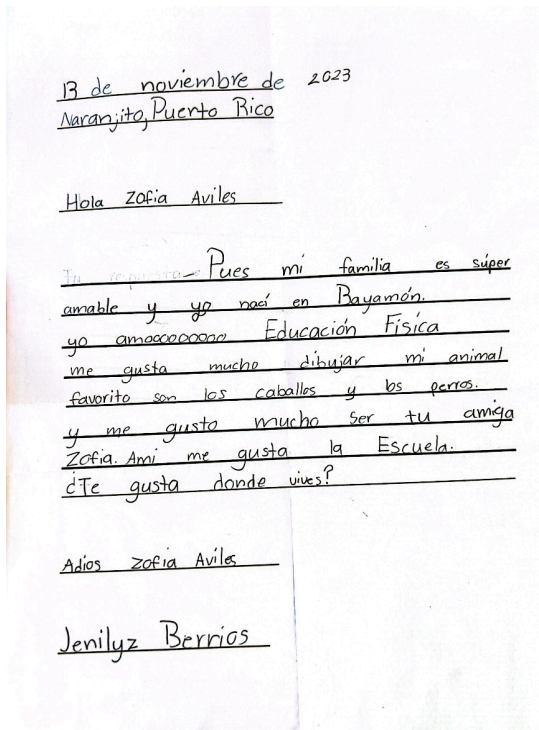 13 de noviembre de 2023
Naranjito, Puerto Rico
Hola Zofia Aviles
Tu respuesta - Pues mi familia es súper
amable y yo nací en Bayamón.
yo amooooooooo Educación Física
me gusta mucho dibujar mi animal
favorito son los caballos y los perros.
y me gusto mucho ser tu amiga
Zofia. Ami me gusta la Escuela.
¿Te gusta donde vives?
Adios Zofia Aviles
Jenilyz Berrios